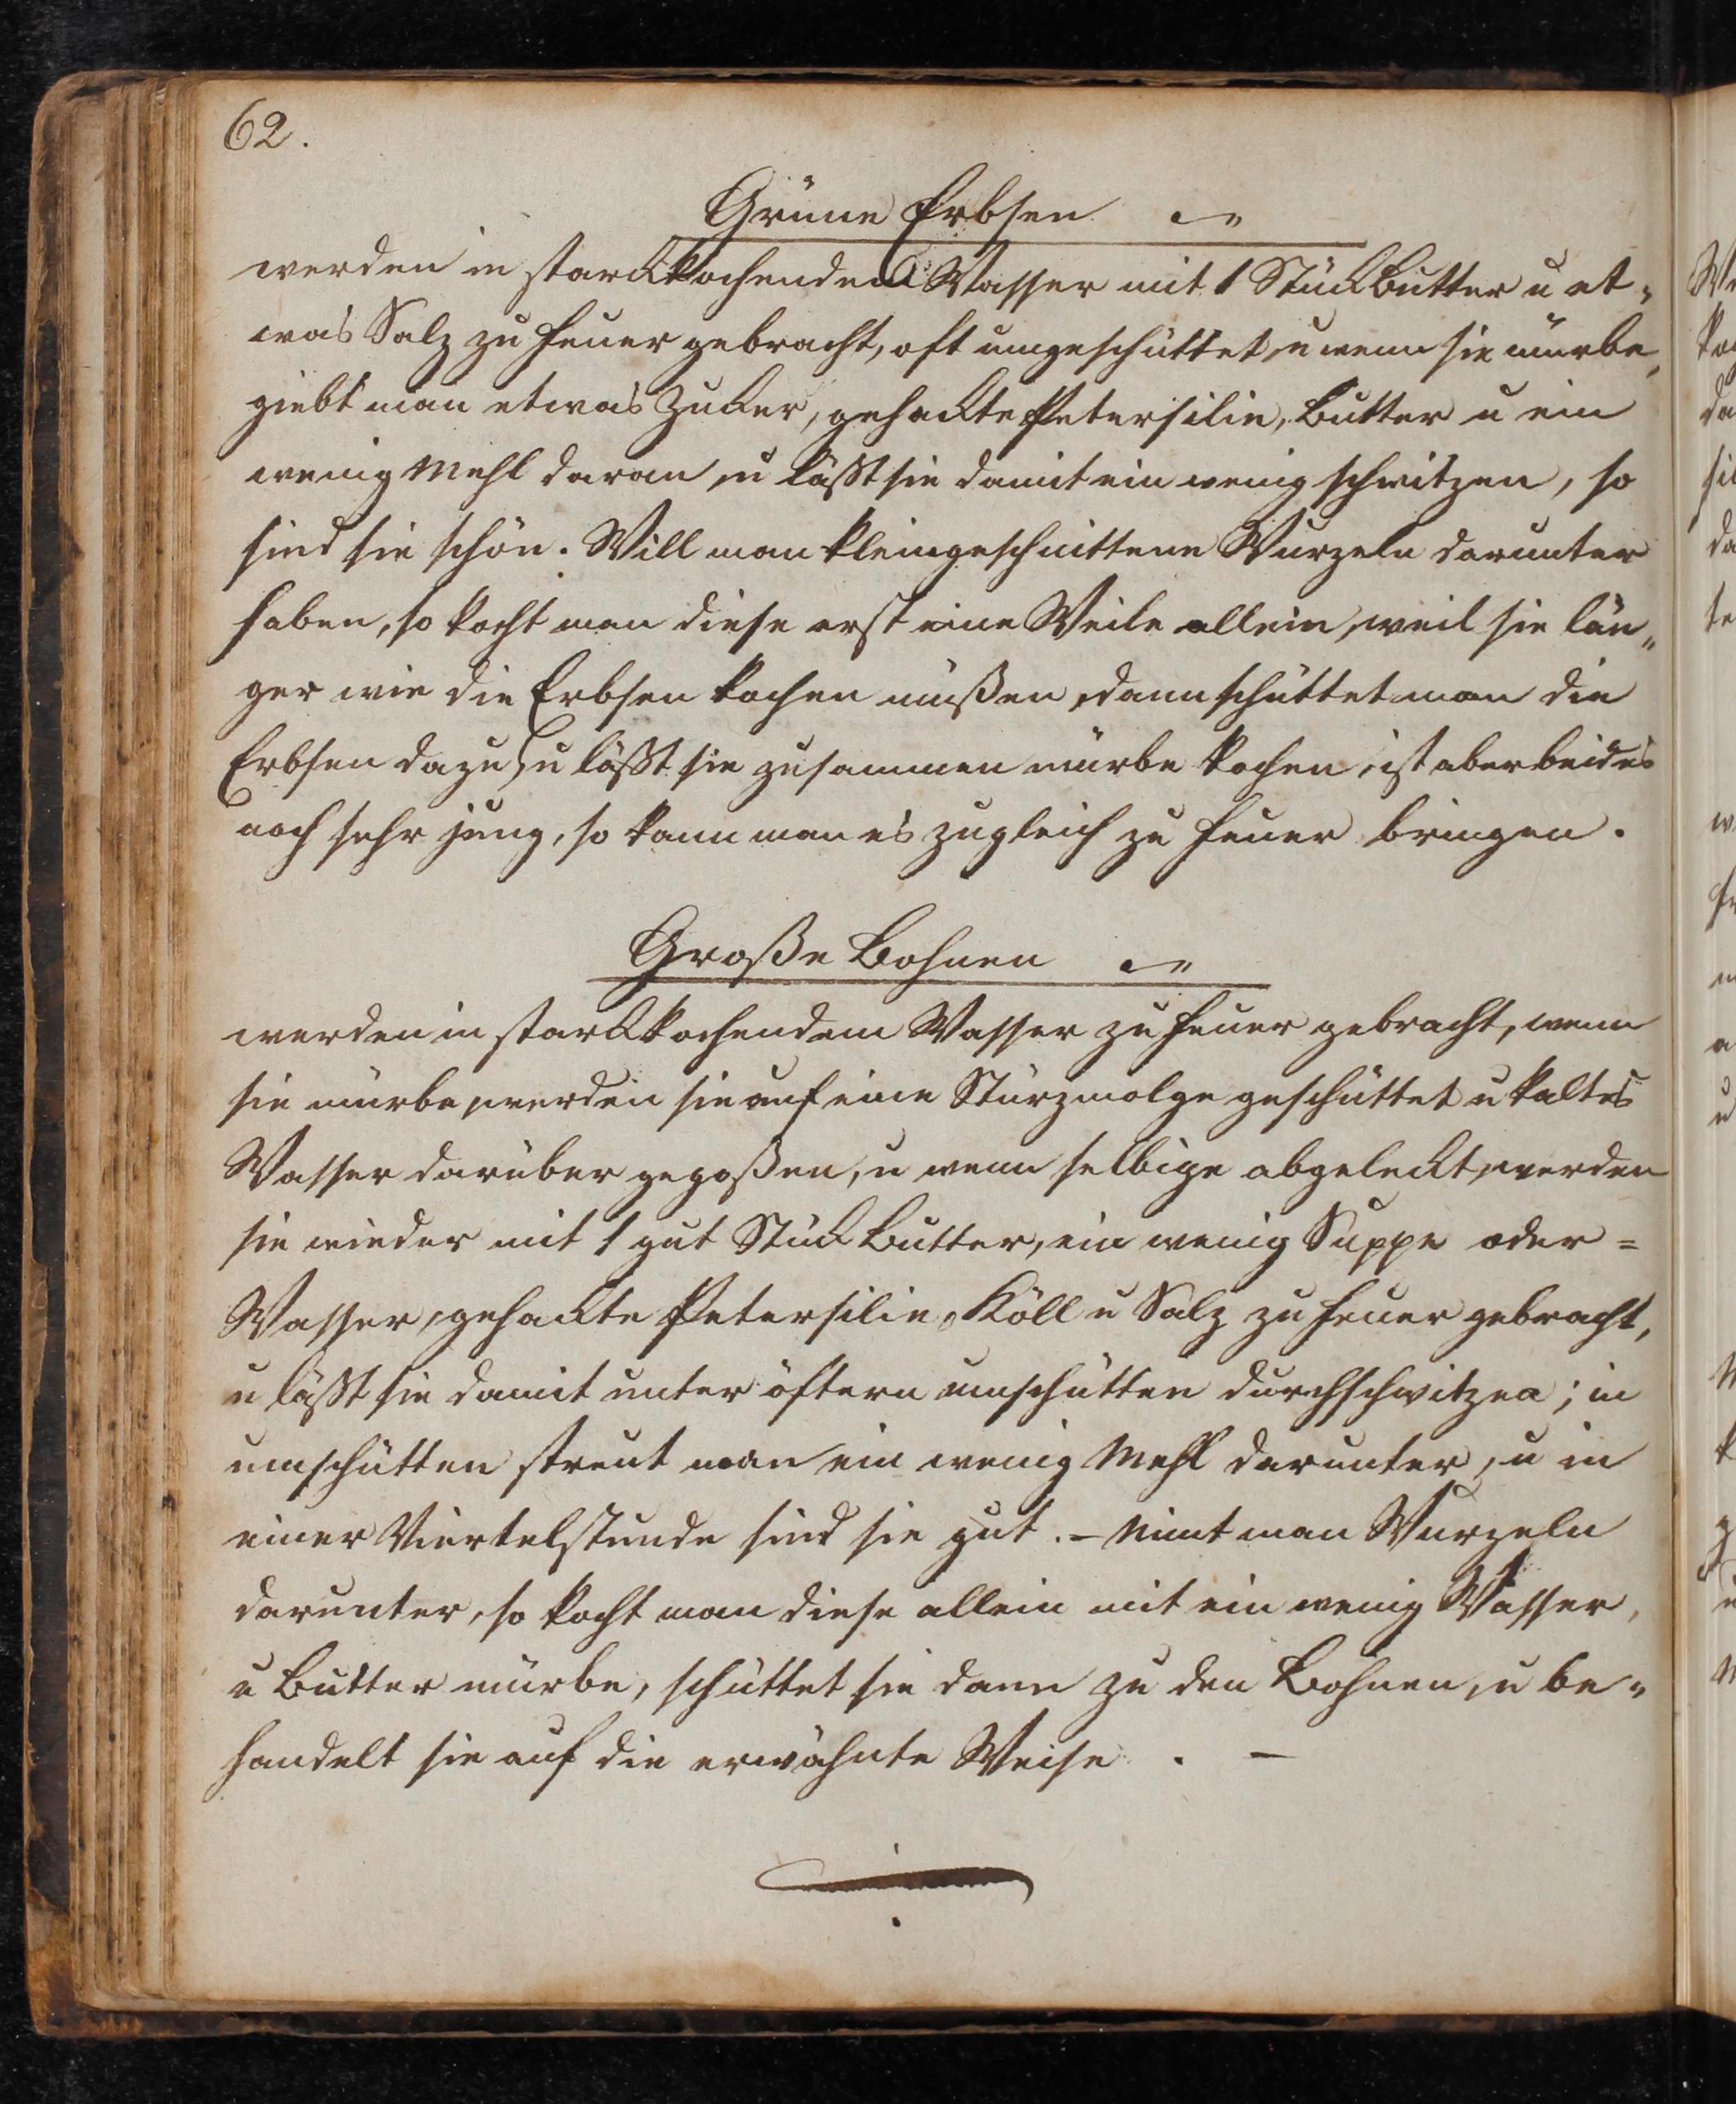 62.
Grüne Erbsen
werden in starckkochendem Wasser mit 1 Stück Butter u et„
was Salz zu Feuer gebracht, oft umgeschüttet, u wenn sie mürbe,
giebt man etwas Zucker, gehackte Petersilie, Butter u ein
wenig Mehl daran, u läßt sie damit ein wenig schwitzen, so
sind sie schön. Will man kleingeschnittene Wurzeln darunter
haben, so kocht man diese erst eine Weile allein, weil sie län„
ger wie die Erbsen kochen müßen, dann schüttet man die
Erbsen dazu, u läßt sie zusammen mürbe kochen, ist aber beides
noch sehr jung, so kann man es zugleich zu Feuer bringen.
Große Bohnen
werden in starckkochendem Wasser zu Feuer gebracht, wenn
sie mürbe, werden sie auf eine Stürzmolge geschüttet u kaltes
Wasser darüber gegoßen, u wenn selbige abgeleckt, werden
sie wieder mit 1 gut Stück Butter, ein wenig Suppe oder =
Wasser, gehackte Petersilie, Köll u Salz zu Feuer gebracht,
u läßt sie damit unter öftern umschütten durchschwitzen; in
umschütten streut man ein wenig Mehl darunter, u in
einer Viertelstunde sind sie gut. – Nimt man Wurzeln
darunter, so kocht man diese allein mit ein wenig Wasser,
u Butter mürbe, schüttet sie dann zu den Bohnen, u be„
handelt sie auf die erwähnte Weise. –